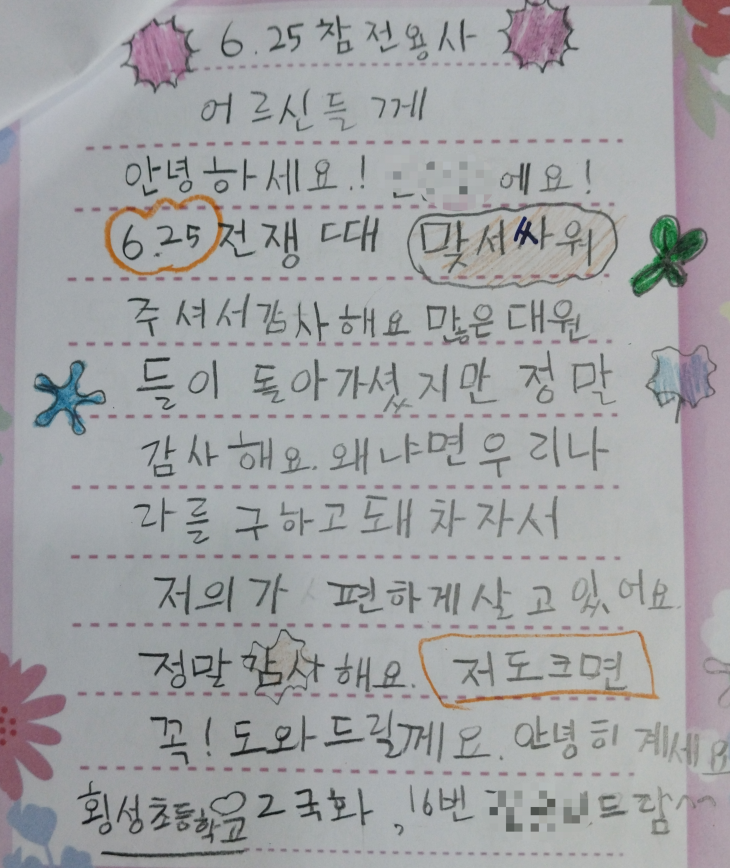 6.25 참전용사
어르신들 게
안녕하세요.! 에요!
6.25 전쟁 때 맞서싸워
주셔서감사해요 많은대원
들이 돌아가셨지만 정말
감사해요. 왜냐면우리나
라를 구하고돼차자서
저의가 편하게살고있어요.
정말감사해요. 저도크면
꼭! 도와드릴께요. 안녕히 계세요
횡성초등학교 2 국화, 16번 드림